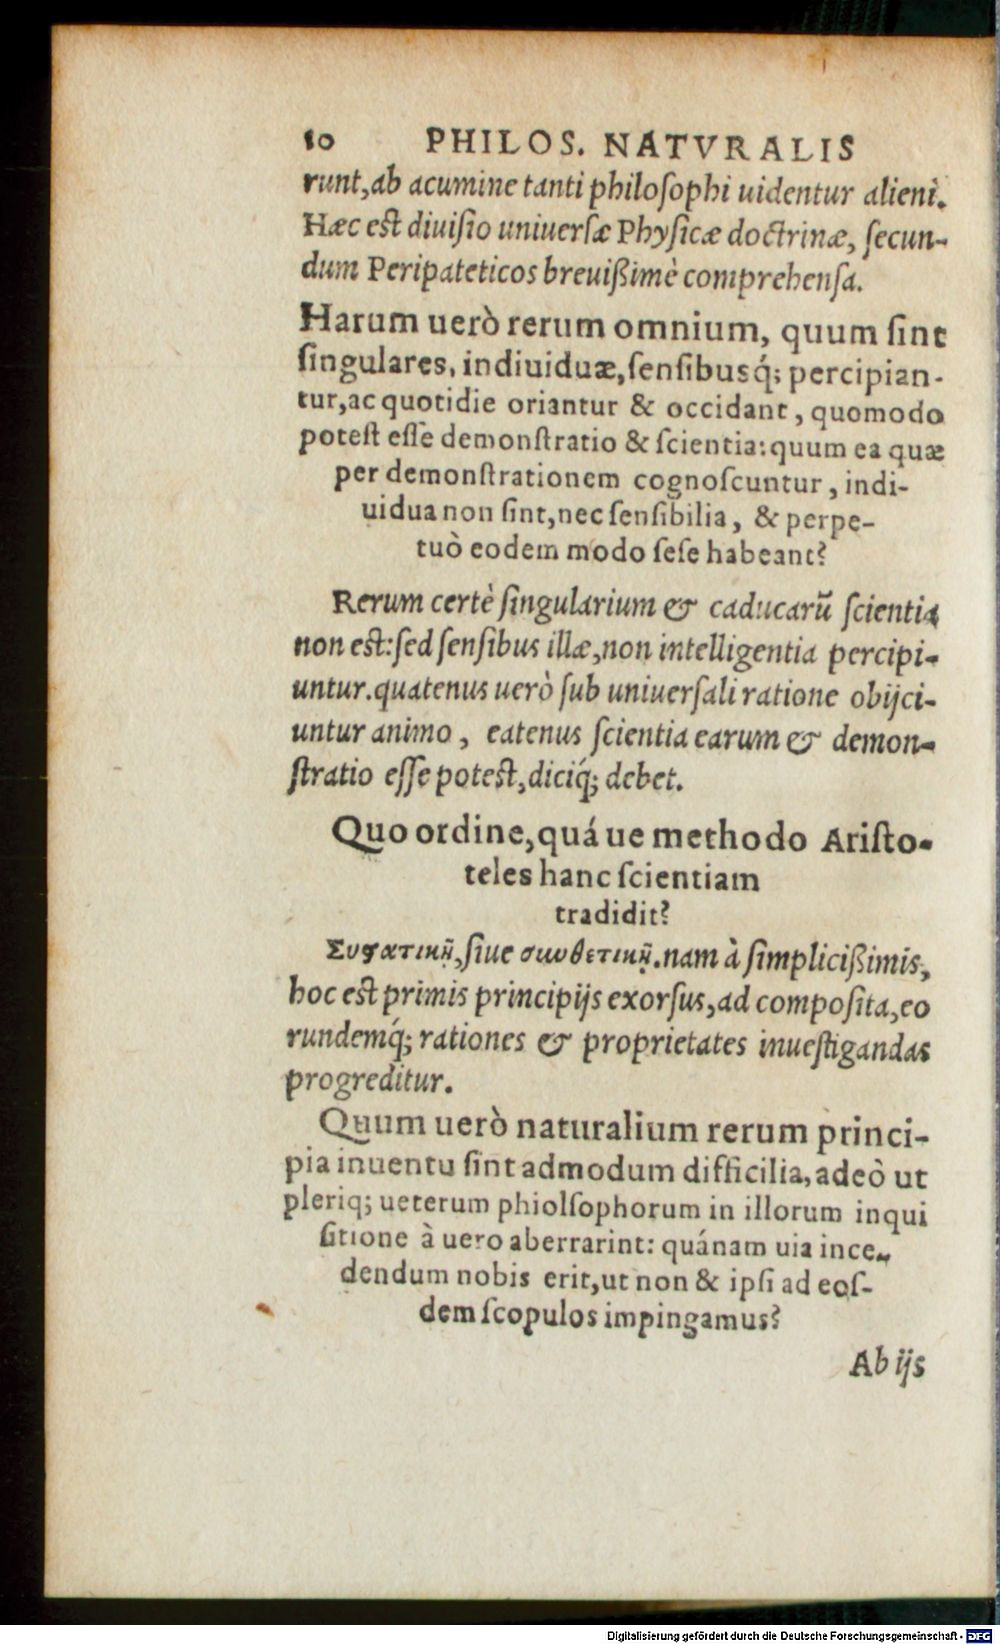 10 PHILOS. NATVRALIS
runt,ab acumine tanti philoſophi uidentur alieni.
Hæc eſt diuiſio uniuerſæ Phyſicæ doctrinæ, ſecun-
dum Peripateticos breuißimè comprehenſa.
Harum uerò rerum omnium, quum ſint
ſingulares, indiuiduæ,ſenſibusq́; percipian-
tur,ac quotidie oriantur & occidant, quomodo
poteſt eſſe demonſtratio & ſcientia:quum ea quæ
per demonſtrationem cognoſcuntur, indi-
uidua non ſint,nec ſenſibilia, & perpe-
tuò eodem modo ſeſe habeant?
Rerum certè ſingularium & caducarũ ſcientia
non eſt:ſed ſenſibus illæ,non intelligentia percipi-
untur.quatenus uerò ſub uniuerſali ratione obijci-
untur animo, eatenus ſcientia earum & demon-
ſtratio eſſe poteſt,diciq́; debet.
Quo ordine,quá ue methodo Ariſto-
teles hanc ſcientiam
tradidit?
Συϛατικῇ,ſiue συνθετικῇ.nam à ſimplicißimis,
hoc eſt primis principijs exorſus,ad compoſita,eo
rundemq́; rationes & proprietates inueſtigandas
progreditur.
Quum uerò naturalium rerum princi-
pia inuentu ſint admodum difficilia,adeò ut
pleriq; ueterum phiolſophorum in illorum inqui
ſitione à uero aberrarint: quánam uia ince-
dendum nobis erit,ut non & ipſi ad eoſ-
dem ſcopulos impingamus?
Ab ijs
Digitalisierung gefördert durch die Deutsche Forschungsgemeinschaft - DFG